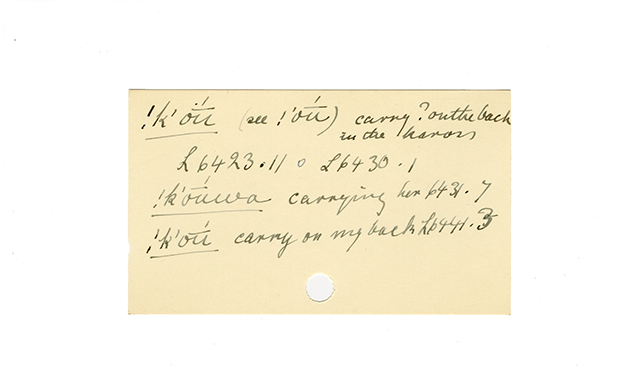 !k'ōú (see !'ōú) carry ? on the back
in the kaross
L6423.11 o L6430.1
!k'ōúwa carrying her 6431.7
!k'ōú carry on my back L6441.3